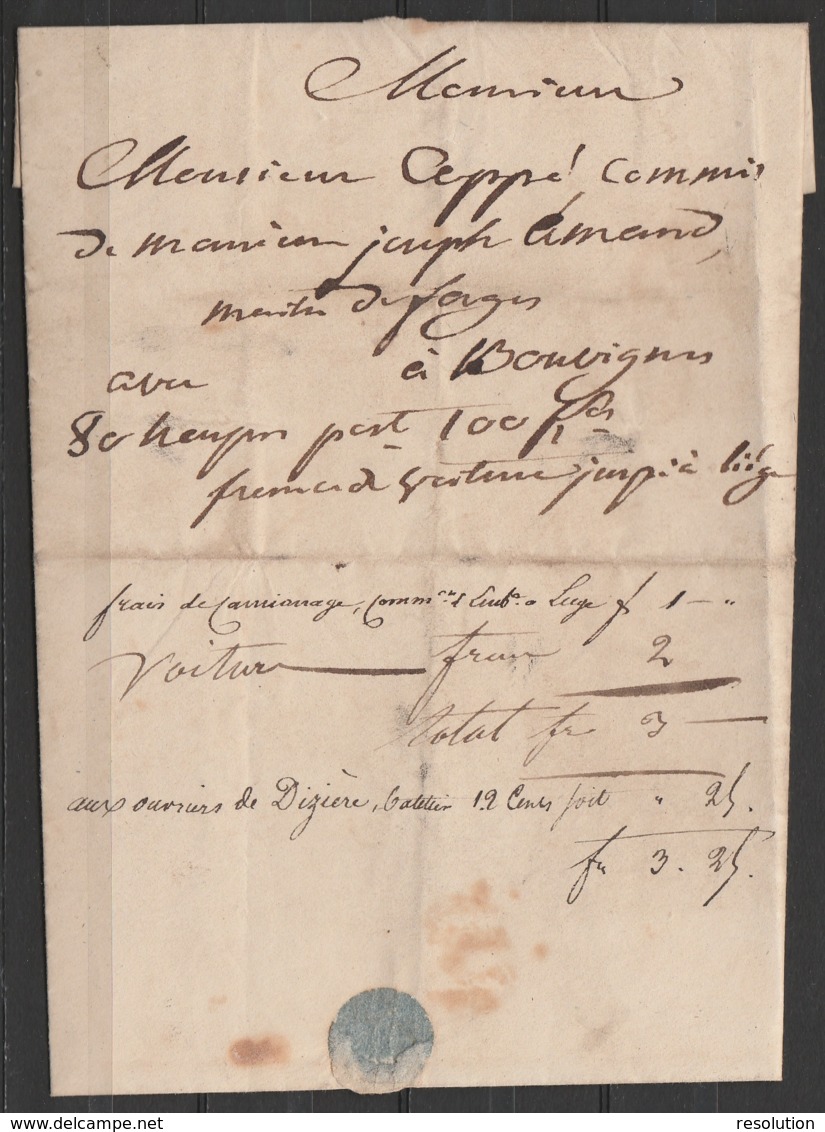 Monsieur
Monsieur Ceppé commis
de monsieur joseph Amand,
maitre de forges
avec à Bouvignes
80 port 100
de voiture jusqu'à liége
frais de Camionage, Comm.on & Emb.e a Liege f 1 — "
Voiture — fran 2
total fr 3 —
aux ouvriers de Dizière, batelier 12 Cents soit " 25.
fr 3. 25.
resolution